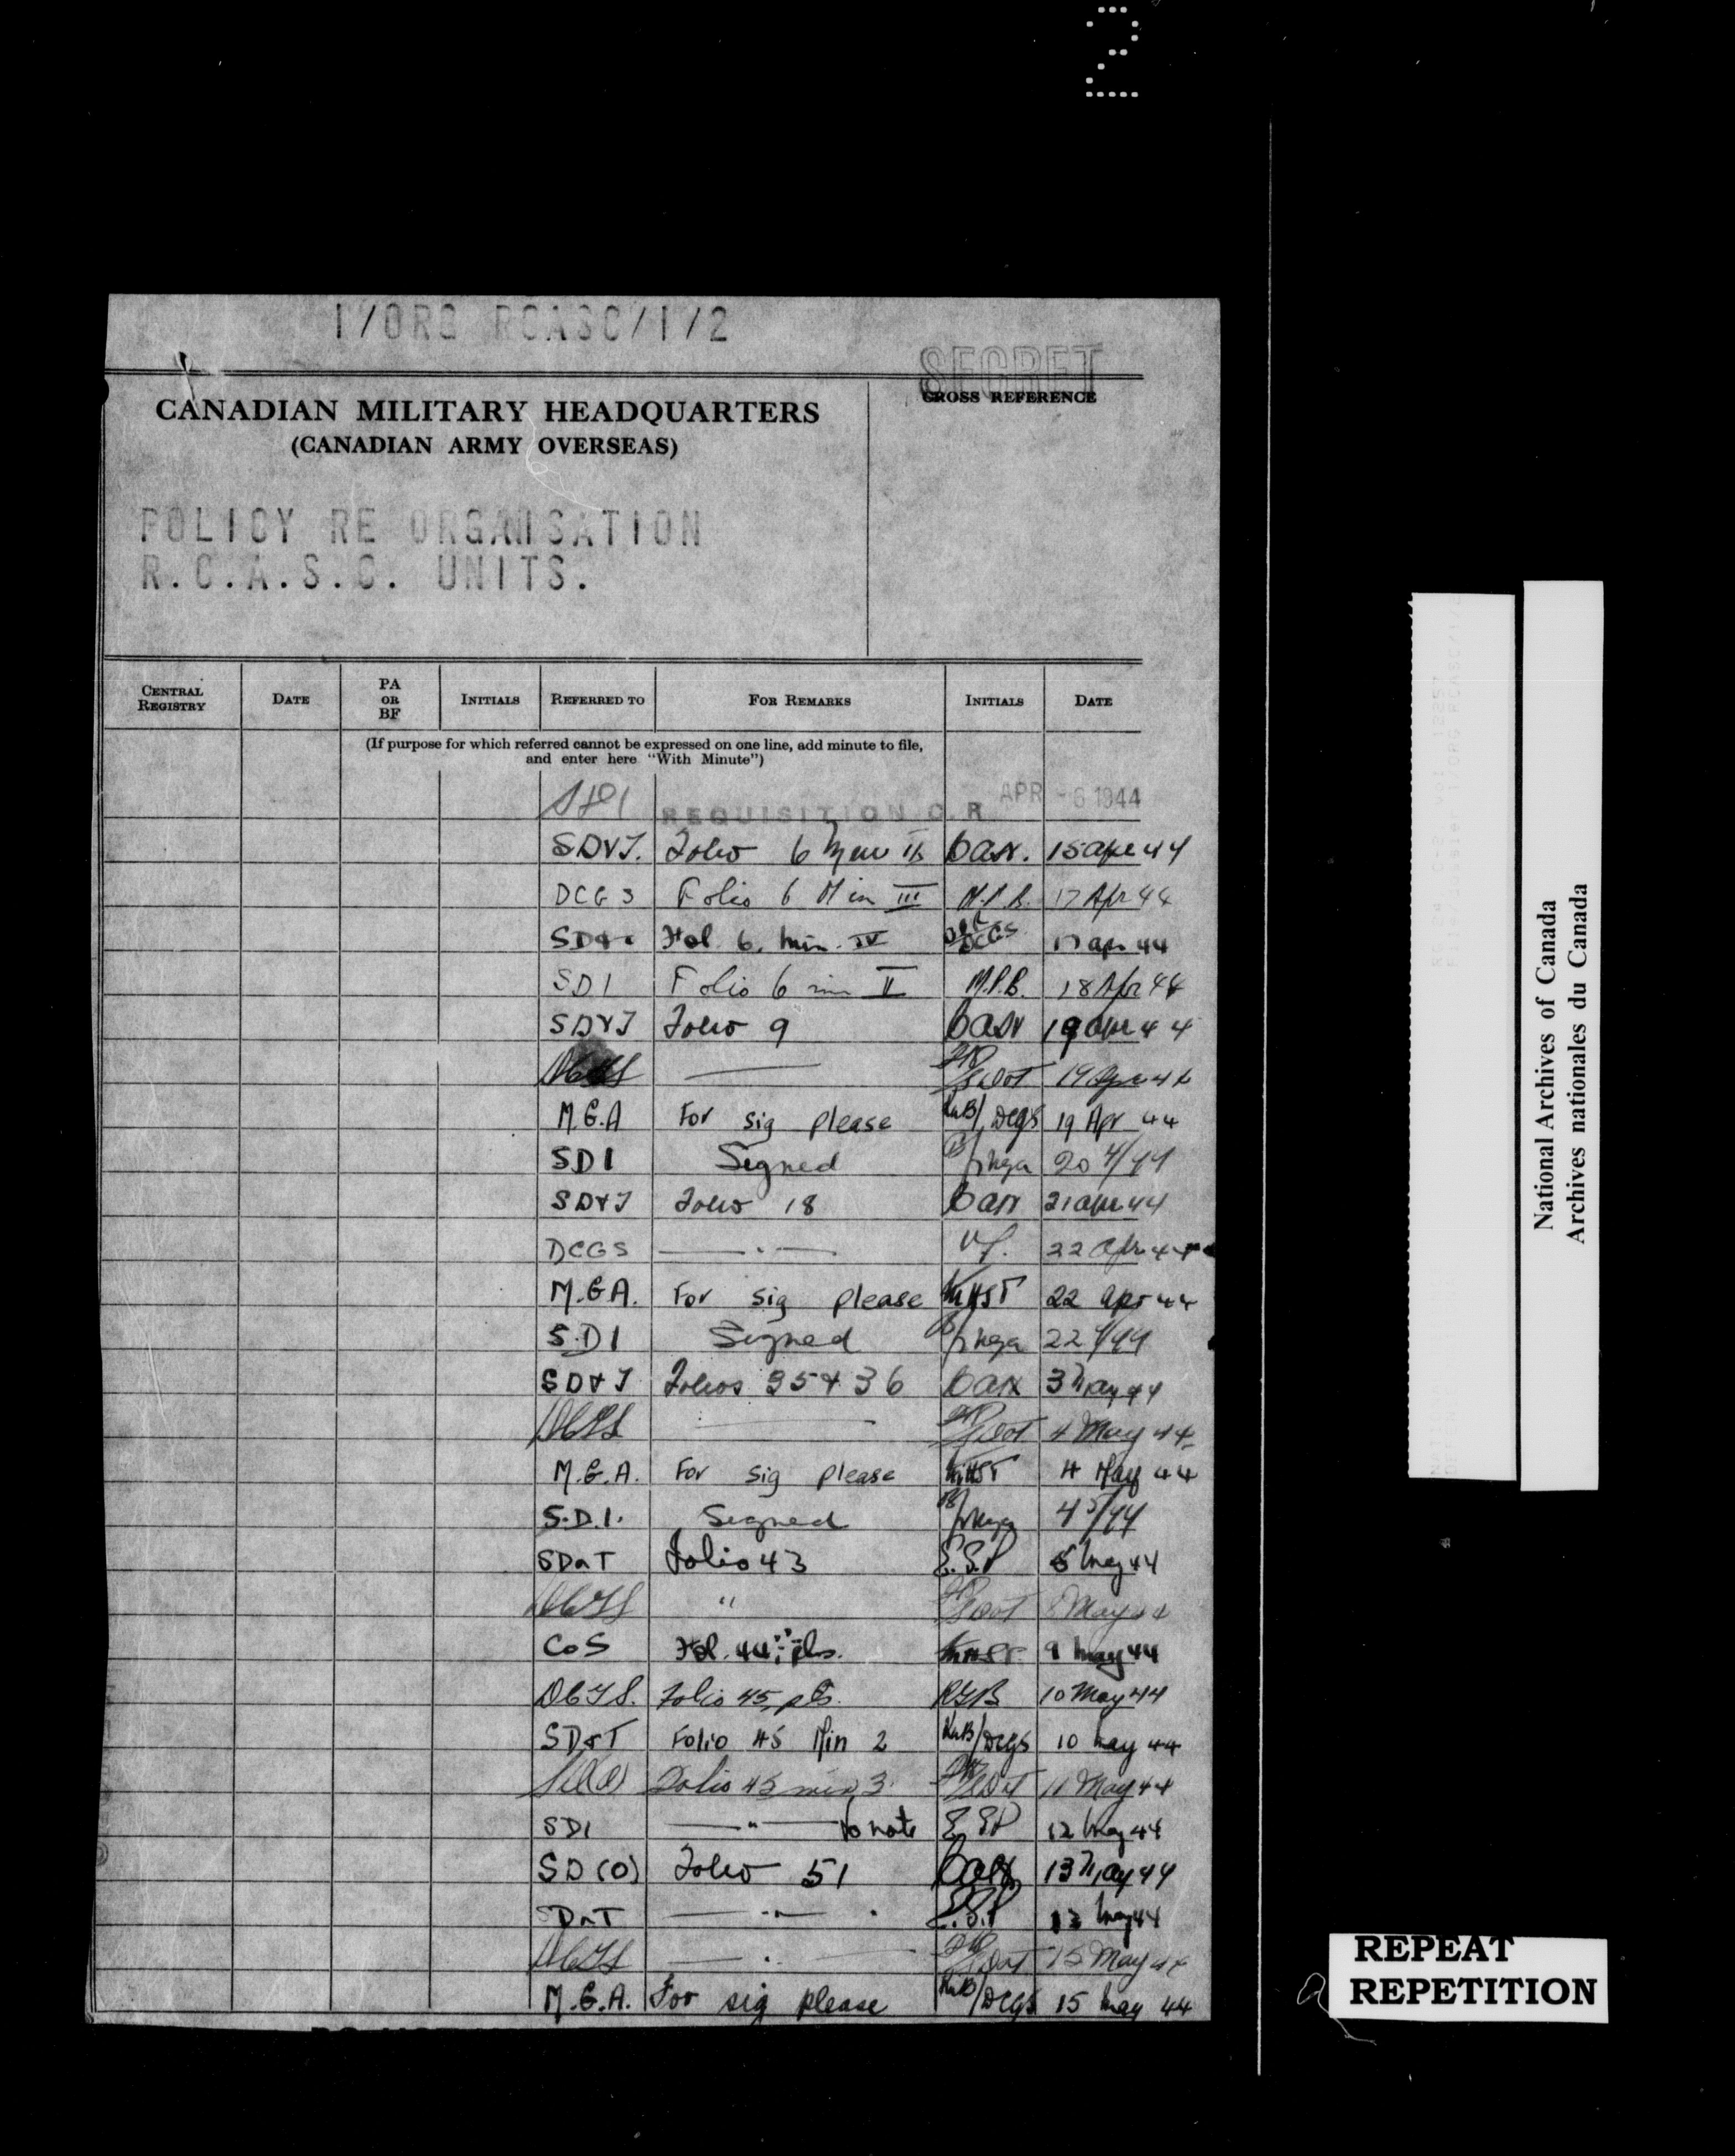 2
1/ORG RCASC/1/2
SECRET
CROSS REFERENCE
CANADIAN MILITARY HEADQUARTERS
(CANADIAN ARMY OVERSEAS)
POLICY RE ORGANISATION
R.C.A.S.C. UNITS.
CENTRAL REGISTRY DATE PA OR BF INITIALS REFERRED TO FOR REMARKS INITIALS DATE
(If purpose for which referred cannot be expressed on one line, add minute to file,
and enter here "With Minute")
SD1 REQUISITION C.R APR -6 1944
SD&T. Folio 6 15 Apr 44
DCGS Folio 6 Min III M.P.B. 17 Apr 44
Fol 6. min. IV DCGS 17 apr 44
SD1 Folio 6 min II M.P.B. 18 Apr 44
SD&T Folio 9 19 Apr 44
DCGS — SD&T 19 Apr 44
M.G.A For sig please DCGS 19 Apr 44
SD1 Signed /mga 20 4/44
SD&T Folio 18 21 Apr 44
DCGS — " — 22 Apr 44
M.G.A. For sig please 22 Apr 44
S.D1 Signed /mga 22 4/44
SD&T Folios 35 & 36 3 May 44
DCGS — SD&T 4 May 44
M.G.A. For sig please 4 May 44
S.D.1. Signed /mga 4 5/44
SD&T Folio 43 E.S.P 5 May 44
DCGS " SD&T 8 May 44
CoS Fol. 44 pls. 9 May 44
DCGS. Folio 45, pls. 10 May 44
SD&T Folio 45 Min 2 /DCGS 10 May 44
SD(O) Folio 45 min 3 SD&T 11 May 44
SD1 — " — to note E.S.P 12 May 44
SD(O) Folio 51 13 May 44
SD&T — " — E.S.P 13 May 44
DCGS — " — SD&T 15 May 44
M.G.A. For sig please /DCGS 15 May 44
National Archives of Canada
Archives nationales du Canada
REPEAT
REPETITION